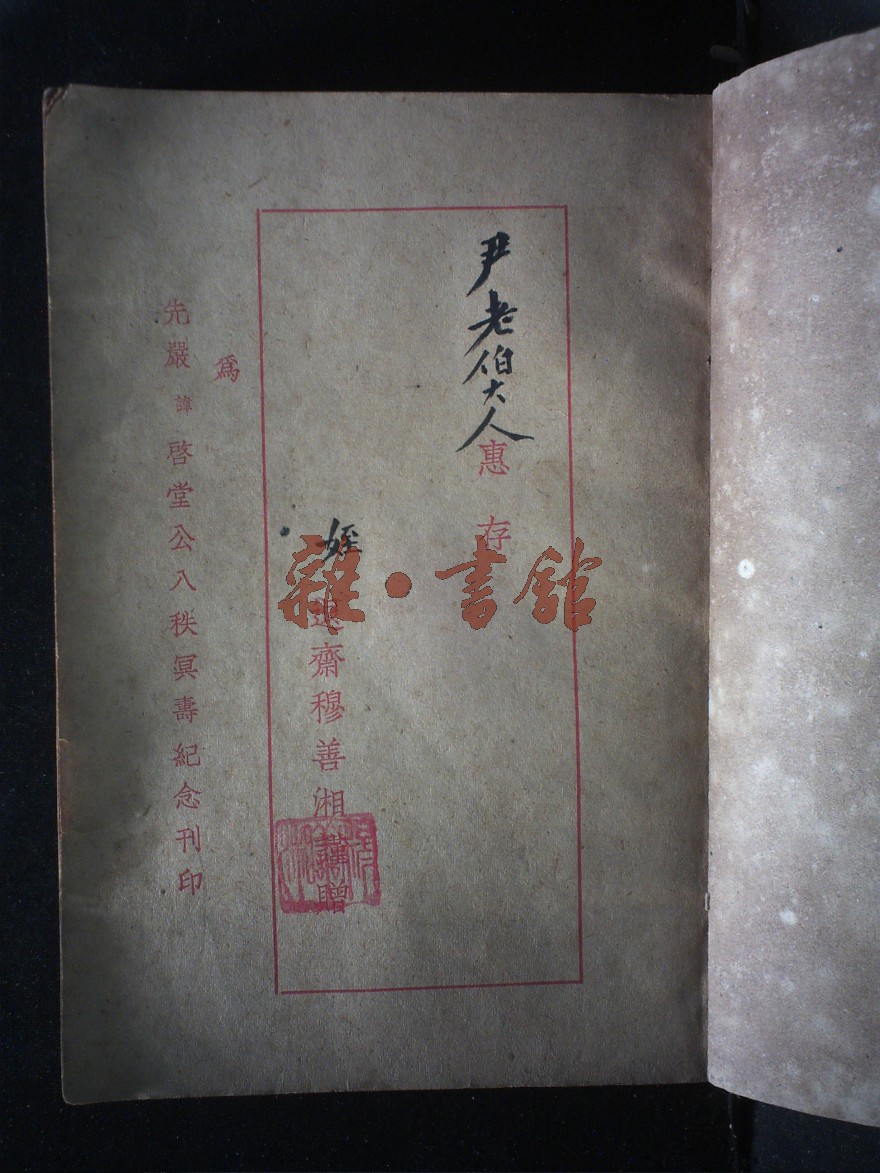 尹老伯大人惠存
姪
齋穆善湘謹贈
爲
先嚴諱啓堂公八秩冥壽紀念刊印
雜·書館